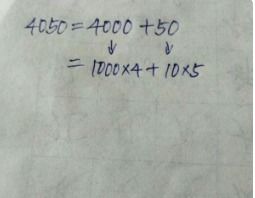 4050 = 4000 + 50
↓ ↓
= 1000×4 + 10×5